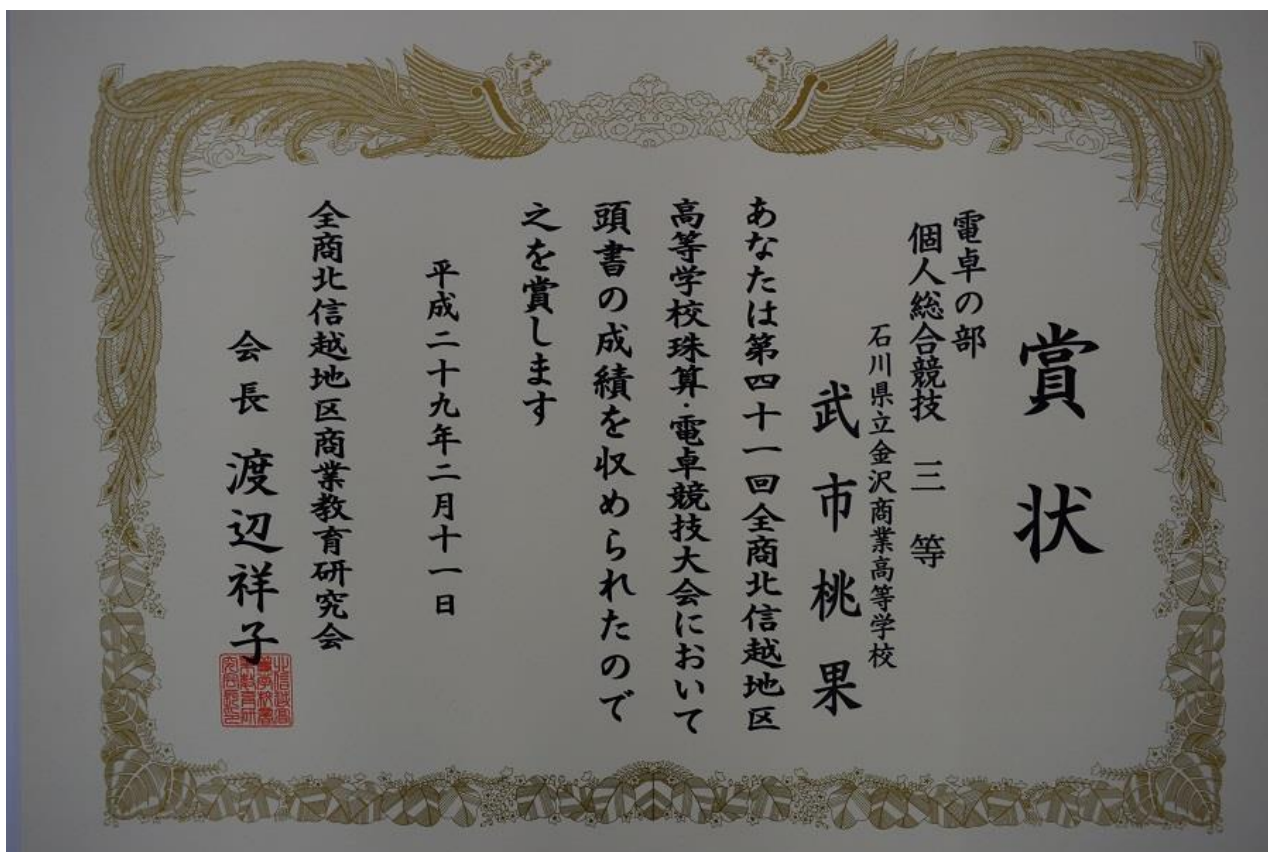 賞状
電卓の部
個人総合競技 三等
石川県立金沢商業高等学校
武市桃果
あなたは第四十一回全商北信越地区
高等学校珠算・電卓競技大会において
頭書の成績を収められたので
之を賞します
平成二十九年二月十一日
全商北信越地区商業教育研究会
会長 渡辺祥子